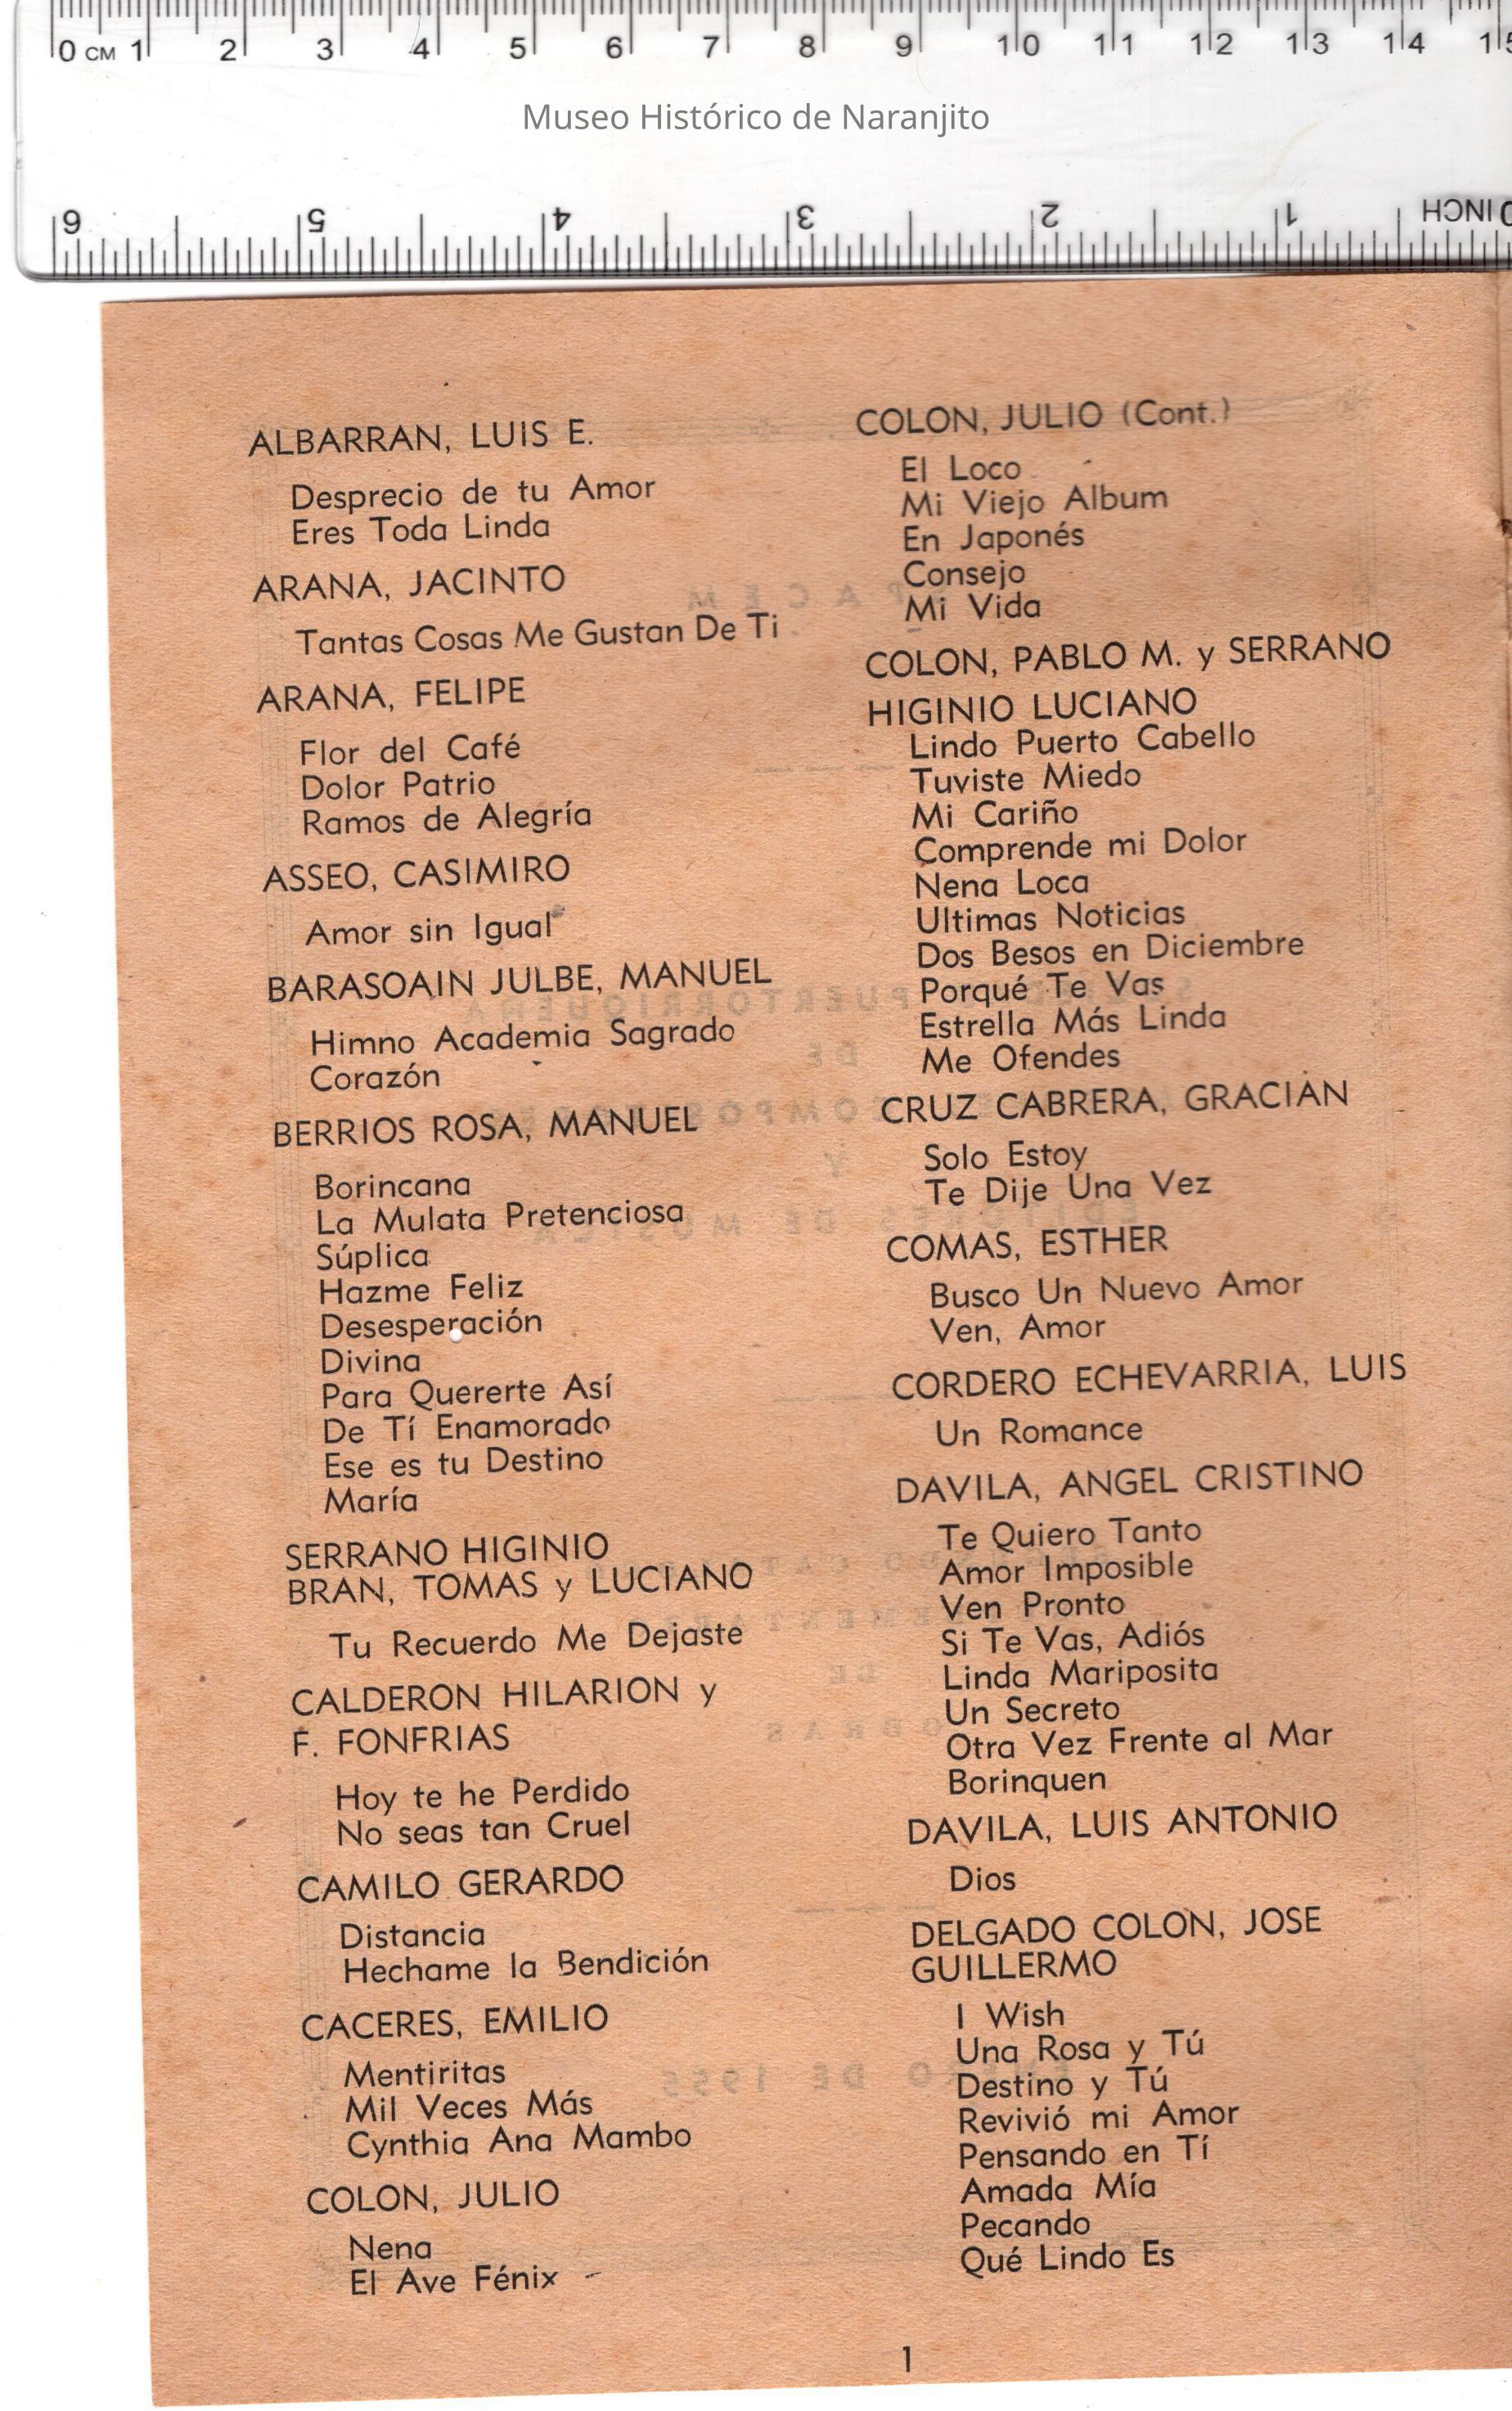 0 CM 1 2 3 4 5 6 7 8 9 10 11 12 13 14 15
Museo Histórico de Naranjito
6 5 4 3 2 1 INCH 0
ALBARRAN, LUIS E.
Desprecio de tu Amor
Eres Toda Linda
ARANA, JACINTO
Tantas Cosas Me Gustan De Ti
ARANA, FELIPE
Flor del Café
Dolor Patrio
Ramos de Alegría
ASSEO, CASIMIRO
Amor sin Igual
BARASOAIN JULBE, MANUEL
Himno Academia Sagrado
Corazón
BERRIOS ROSA, MANUEL
Borincana
La Mulata Pretenciosa
Súplica
Hazme Feliz
Desesperación
Divina
Para Quererte Así
De Tí Enamorado
Ese es tu Destino
María
SERRANO HIGINIO
BRAN, TOMAS y LUCIANO
Tu Recuerdo Me Dejaste
CALDERON HILARION y
F. FONFRIAS
Hoy te he Perdido
No seas tan Cruel
CAMILO GERARDO
Distancia
Hechame la Bendición
CACERES, EMILIO
Mentiritas
Mil Veces Más
Cynthia Ana Mambo
COLON, JULIO
Nena
El Ave Fénix
COLON, JULIO (Cont.)
El Loco
Mi Viejo Album
En Japonés
Consejo
Mi Vida
COLON, PABLO M. y SERRANO
HIGINIO LUCIANO
Lindo Puerto Cabello
Tuviste Miedo
Mi Cariño
Comprende mi Dolor
Nena Loca
Ultimas Noticias
Dos Besos en Diciembre
Porqué Te Vas
Estrella Más Linda
Me Ofendes
CRUZ CABRERA, GRACIAN
Solo Estoy
Te Dije Una Vez
COMAS, ESTHER
Busco Un Nuevo Amor
Ven, Amor
CORDERO ECHEVARRIA, LUIS
Un Romance
DAVILA, ANGEL CRISTINO
Te Quiero Tanto
Amor Imposible
Ven Pronto
Si Te Vas, Adiós
Linda Mariposita
Un Secreto
Otra Vez Frente al Mar
Borinquen
DAVILA, LUIS ANTONIO
Dios
DELGADO COLON, JOSE
GUILLERMO
I Wish
Una Rosa y Tú
Destino y Tú
Revivió mi Amor
Pensando en Tí
Amada Mía
Pecando
Qué Lindo Es
1